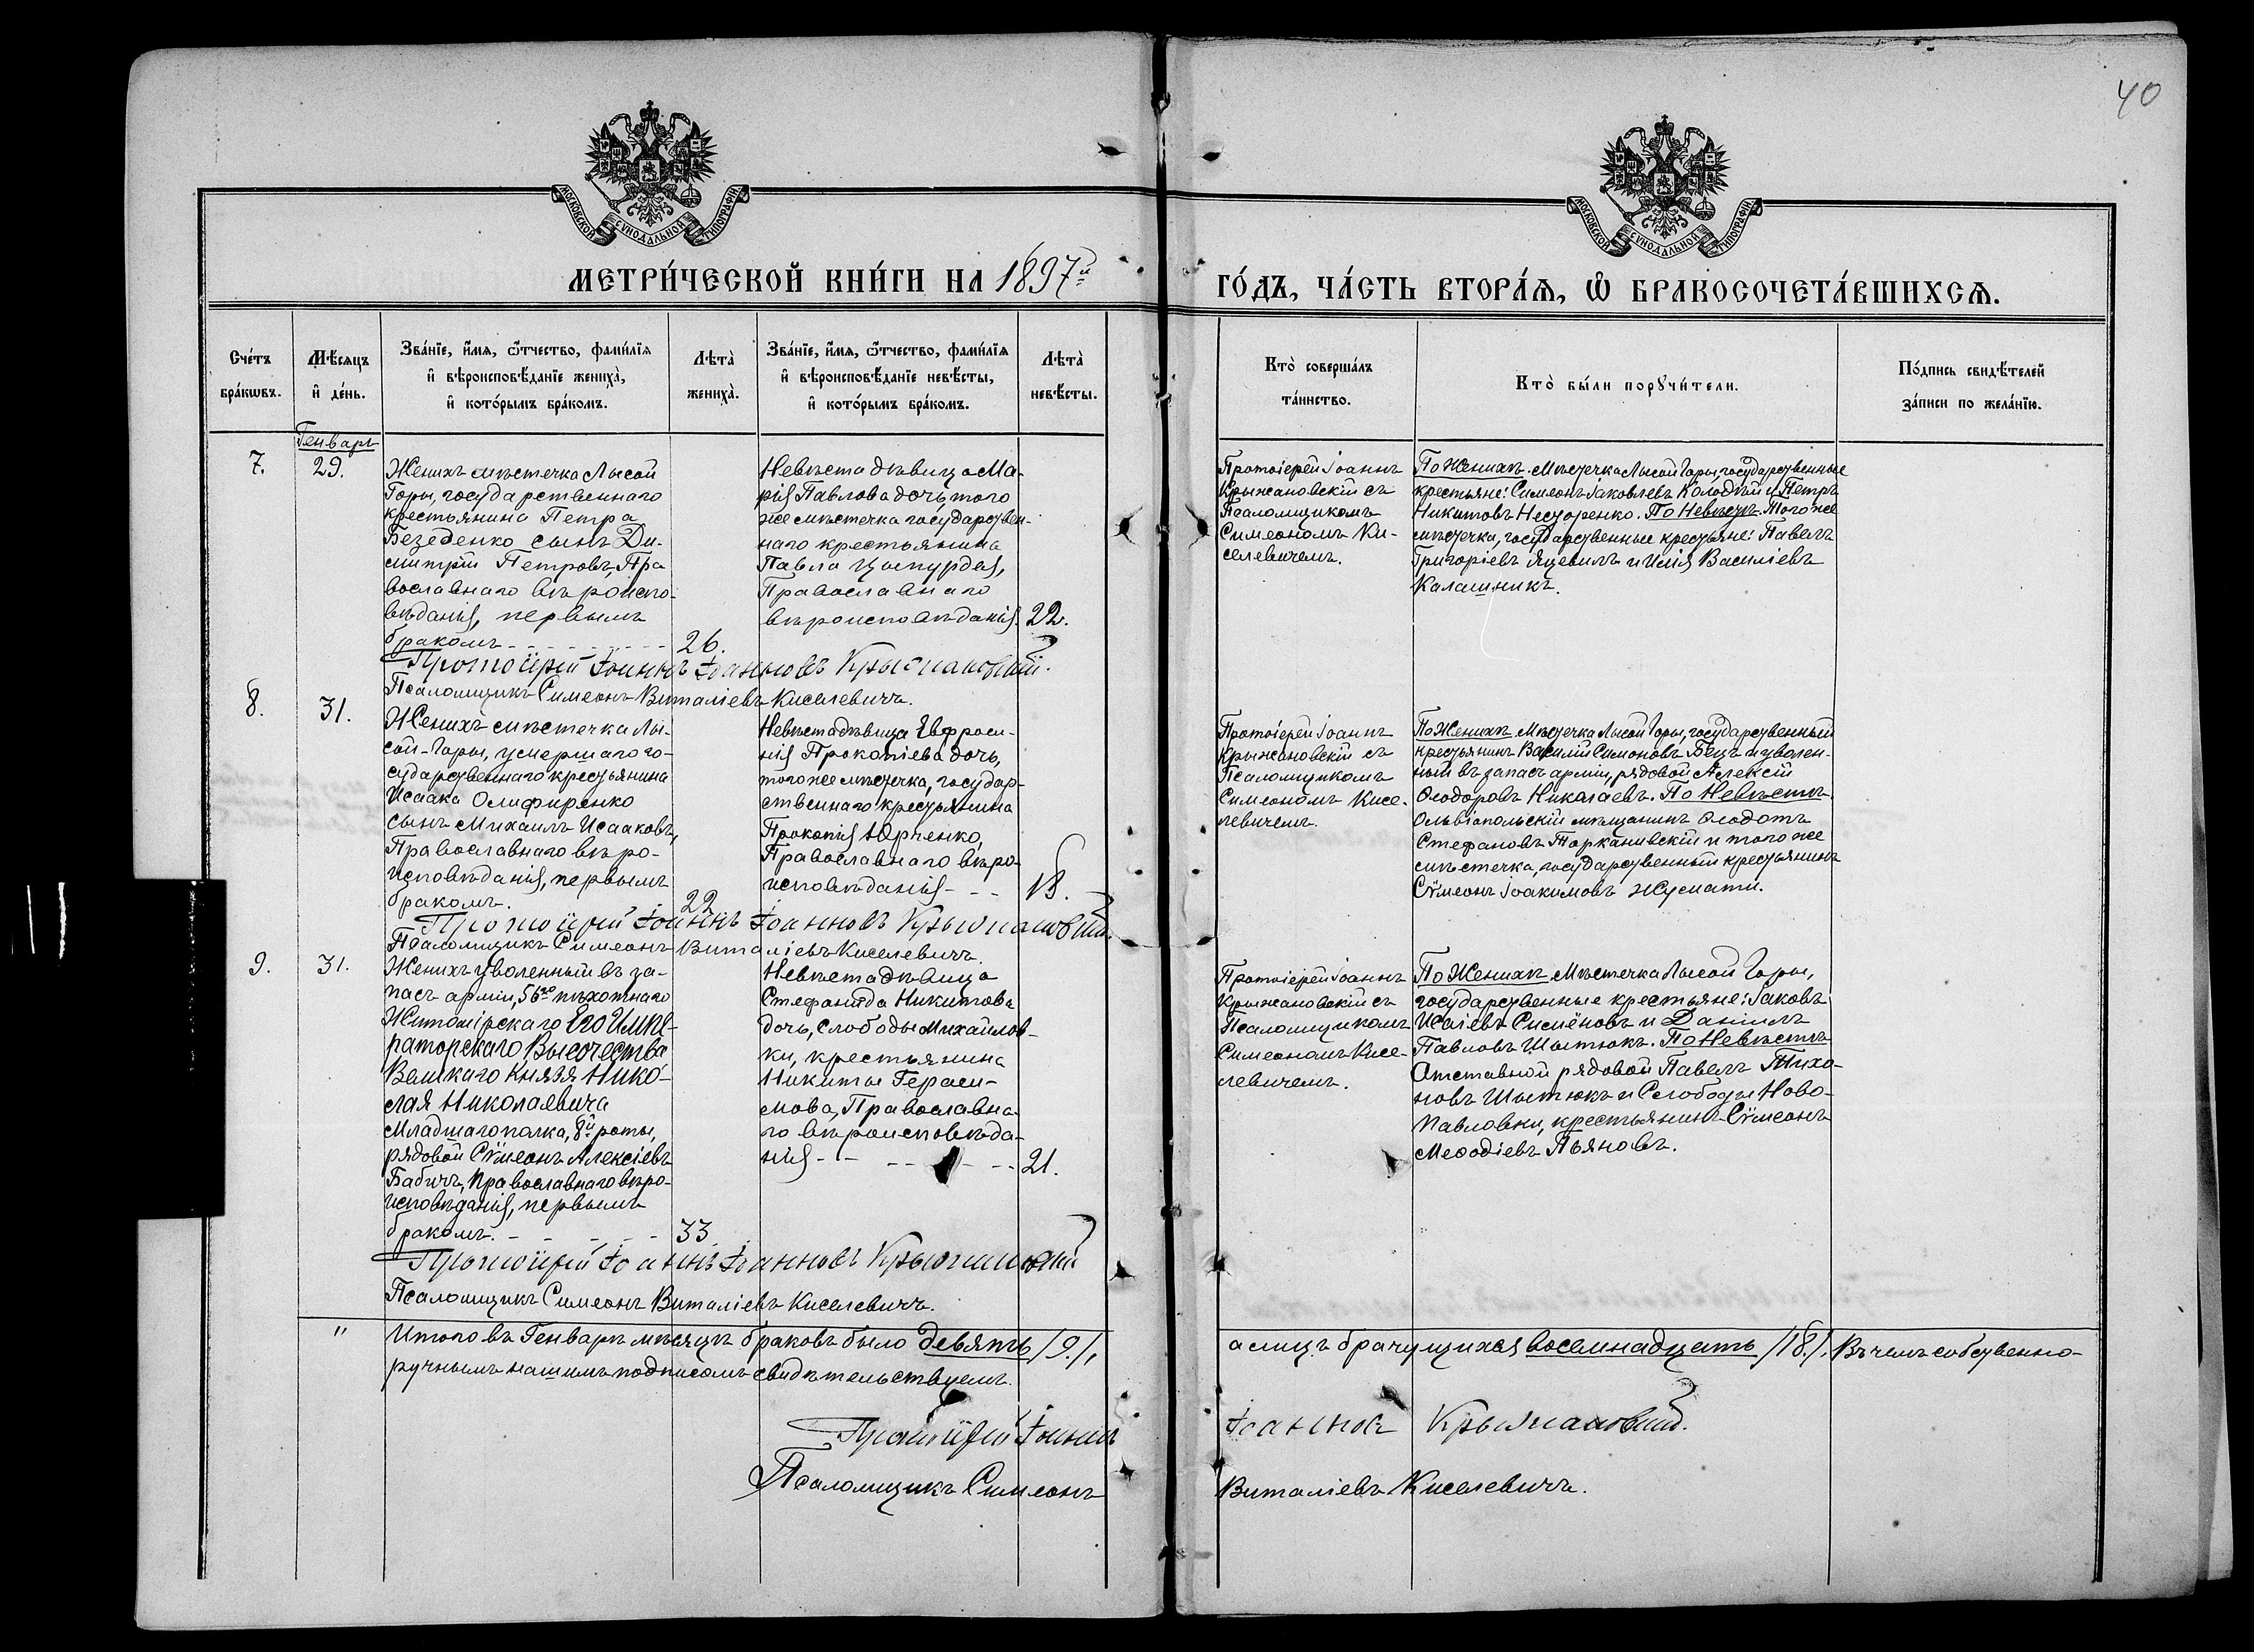 40
МОСКОВСКОЙ СѴНОДАЛЬНОЙ ТИПОГРАФІИ
МОСКОВСКОЙ СѴНОДАЛЬНОЙ ТИПОГРАФІИ
МЕТРИ́ЧЕСКОЙ КНИ́ГИ НА 1897й
ГО́ДЪ, ЧА́СТЬ ВТОРА́Ѧ, Ѡ҆ БРАКОСОЧЕТА́ВШИХСѦ.
Сче́тъ
бра́кѡвъ.
Мѣ́сяцъ
и҆ де́нь.
Зва́нїе, и҆́мѧ, ѻ҆́тчество, фами́лїѧ
и҆ вѣроисповѣ́данїе жениха̀,
и҆ кото́рымъ бра́комъ.
Лѣта̀
жениха̀.
Зва́нїе, и҆́мѧ, ѻ҆́тчество, фами́лїѧ
и҆ вѣроисповѣ́данїе невѣ́сты,
и҆ кото́рымъ бра́комъ.
Лѣта̀
невѣ́сты.
Кто̀ соверша́лъ
та́инство.
Кто̀ бы́ли порꙋчи́тели.
По́дпись свидѣ́телей
за́писи по жела́нїю.
Генварь
7.
29.
Женихъ мѣстечка Лысой
Горы, государственнаго
крестьянина Петра
Безеденко сынъ Ди-
митрій Петровъ, Пра
вославнаго вѣроиспо-
вѣданія, первымъ
бракомъ
26.
Невѣста дѣвица Ма-
рія Павлова дочь, того
же мѣстечка государствен-
наго крестьянина
Павла Цыпурдея,
Православнаго
вѣроисповѣданія.
22.
Протоіерей Іоаннъ
Крыжановскій съ
Псаломщикомъ
Симеономъ Ки-
селевичемъ.
По Женихѣ. Мѣстечка Лысой Горы, государственные
крестьяне: Симеонъ Іаковлевъ Колодѣй и Петръ
Никитовъ Несторенко. По Невѣстѣ. Того же
мѣстечка, государственные крестьяне: Павелъ
Григоріевъ Яцевилъ и Илія Василіевъ
Калашникъ.
Протоіерей Іоаннъ Іоанновъ Крыжановскій.
Псаломщикъ Симеонъ Виталіевъ Киселевичъ.
8.
31.
Женихъ мѣстечка Лы-
сой-Горы, умершаго го-
сударственнаго крестьянина
Исаака Олифиренко
сынъ Михаилъ Исааковъ,
Православнаго вѣро-
исповѣданія, первымъ
бракомъ.
22.
Невѣста дѣвица Евфроси-
нія Прокопіева дочь,
того же мѣстечка, государ-
ственнаго крестьянина
Прокопія Юрченко,
Православнаго вѣро-
исповѣданія
18.
Протоіерей Іоаннъ
Крыжановскій съ
Псаломщикомъ
Симеономъ Кисе-
левичемъ.
По Женихѣ. Мѣстечка Лысой Горы, государственный
крестьянинъ Василій Симоновъ Бецъ и уволен-
ный въ запасъ арміи, рядовой Алексій
Ѳеодоровъ Николаевъ. По Невѣстѣ.
Ольвіопольскій мѣщанинъ Ѳеодотъ
Стефановъ Торканивскій и того же
мѣстечка, государственный крестьянинъ
Сѵмеонъ Іоакимовъ Жусмати.
Протоіерей Іоаннъ Іоанновъ Крыжановскій.
Псаломщикъ Симеонъ Виталіевъ Киселевичъ.
9.
31.
Женихъ уволенный въ за-
пасъ арміи, 56го пѣхотнаго
Житомірскаго Его Импе-
раторскаго Высочества
Великаго Князя Нико-
лая Николаевича
Младшаго полка, 8й роты,
рядовой Сѵмеонъ Алексіевъ
Бабичъ, Православнаго вѣро-
исповѣданія, первымъ
бракомъ.
33.
Невѣста дѣвица
Стефанида Никитова
дочь, слободы Михайлов-
ки, крестьянина
Никиты Гераси-
мова, Православна-
го вѣроисповѣда-
нія
21.
Протоіерей Іоаннъ
Крыжановскій съ
Псаломщикомъ
Симеономъ Кисе-
левичемъ.
По Женихѣ. Мѣстечка Лысой Горы,
государственные крестьяне: Іаковъ
Исаіевъ Симёновъ и Даніилъ
Павловъ Шытюкъ. По Невѣстѣ
Отставной рядовой Павелъ Тихо-
новъ Шытюкъ и Слободы Ново-
павловки, крестьянинъ Сѵмеонъ
Меѳодіевъ Пьяновъ.
Протоіерей Іоаннъ Іоанновъ Крыжановскій
Псаломщикъ Симеонъ Виталіевъ Киселевичъ.
" Итого въ Генварѣ мѣсяцѣ браковъ было девять /9./, а лицъ брачущихся восемнадцать /18/. Въ чемъ собственно-
ручнымъ нашимъ подписомъ свидѣтельствуемъ.
Протоіерей Іоаннъ Іоанновъ Крыжановскій.
Псаломщикъ Симеонъ Виталіевъ Киселевичъ.